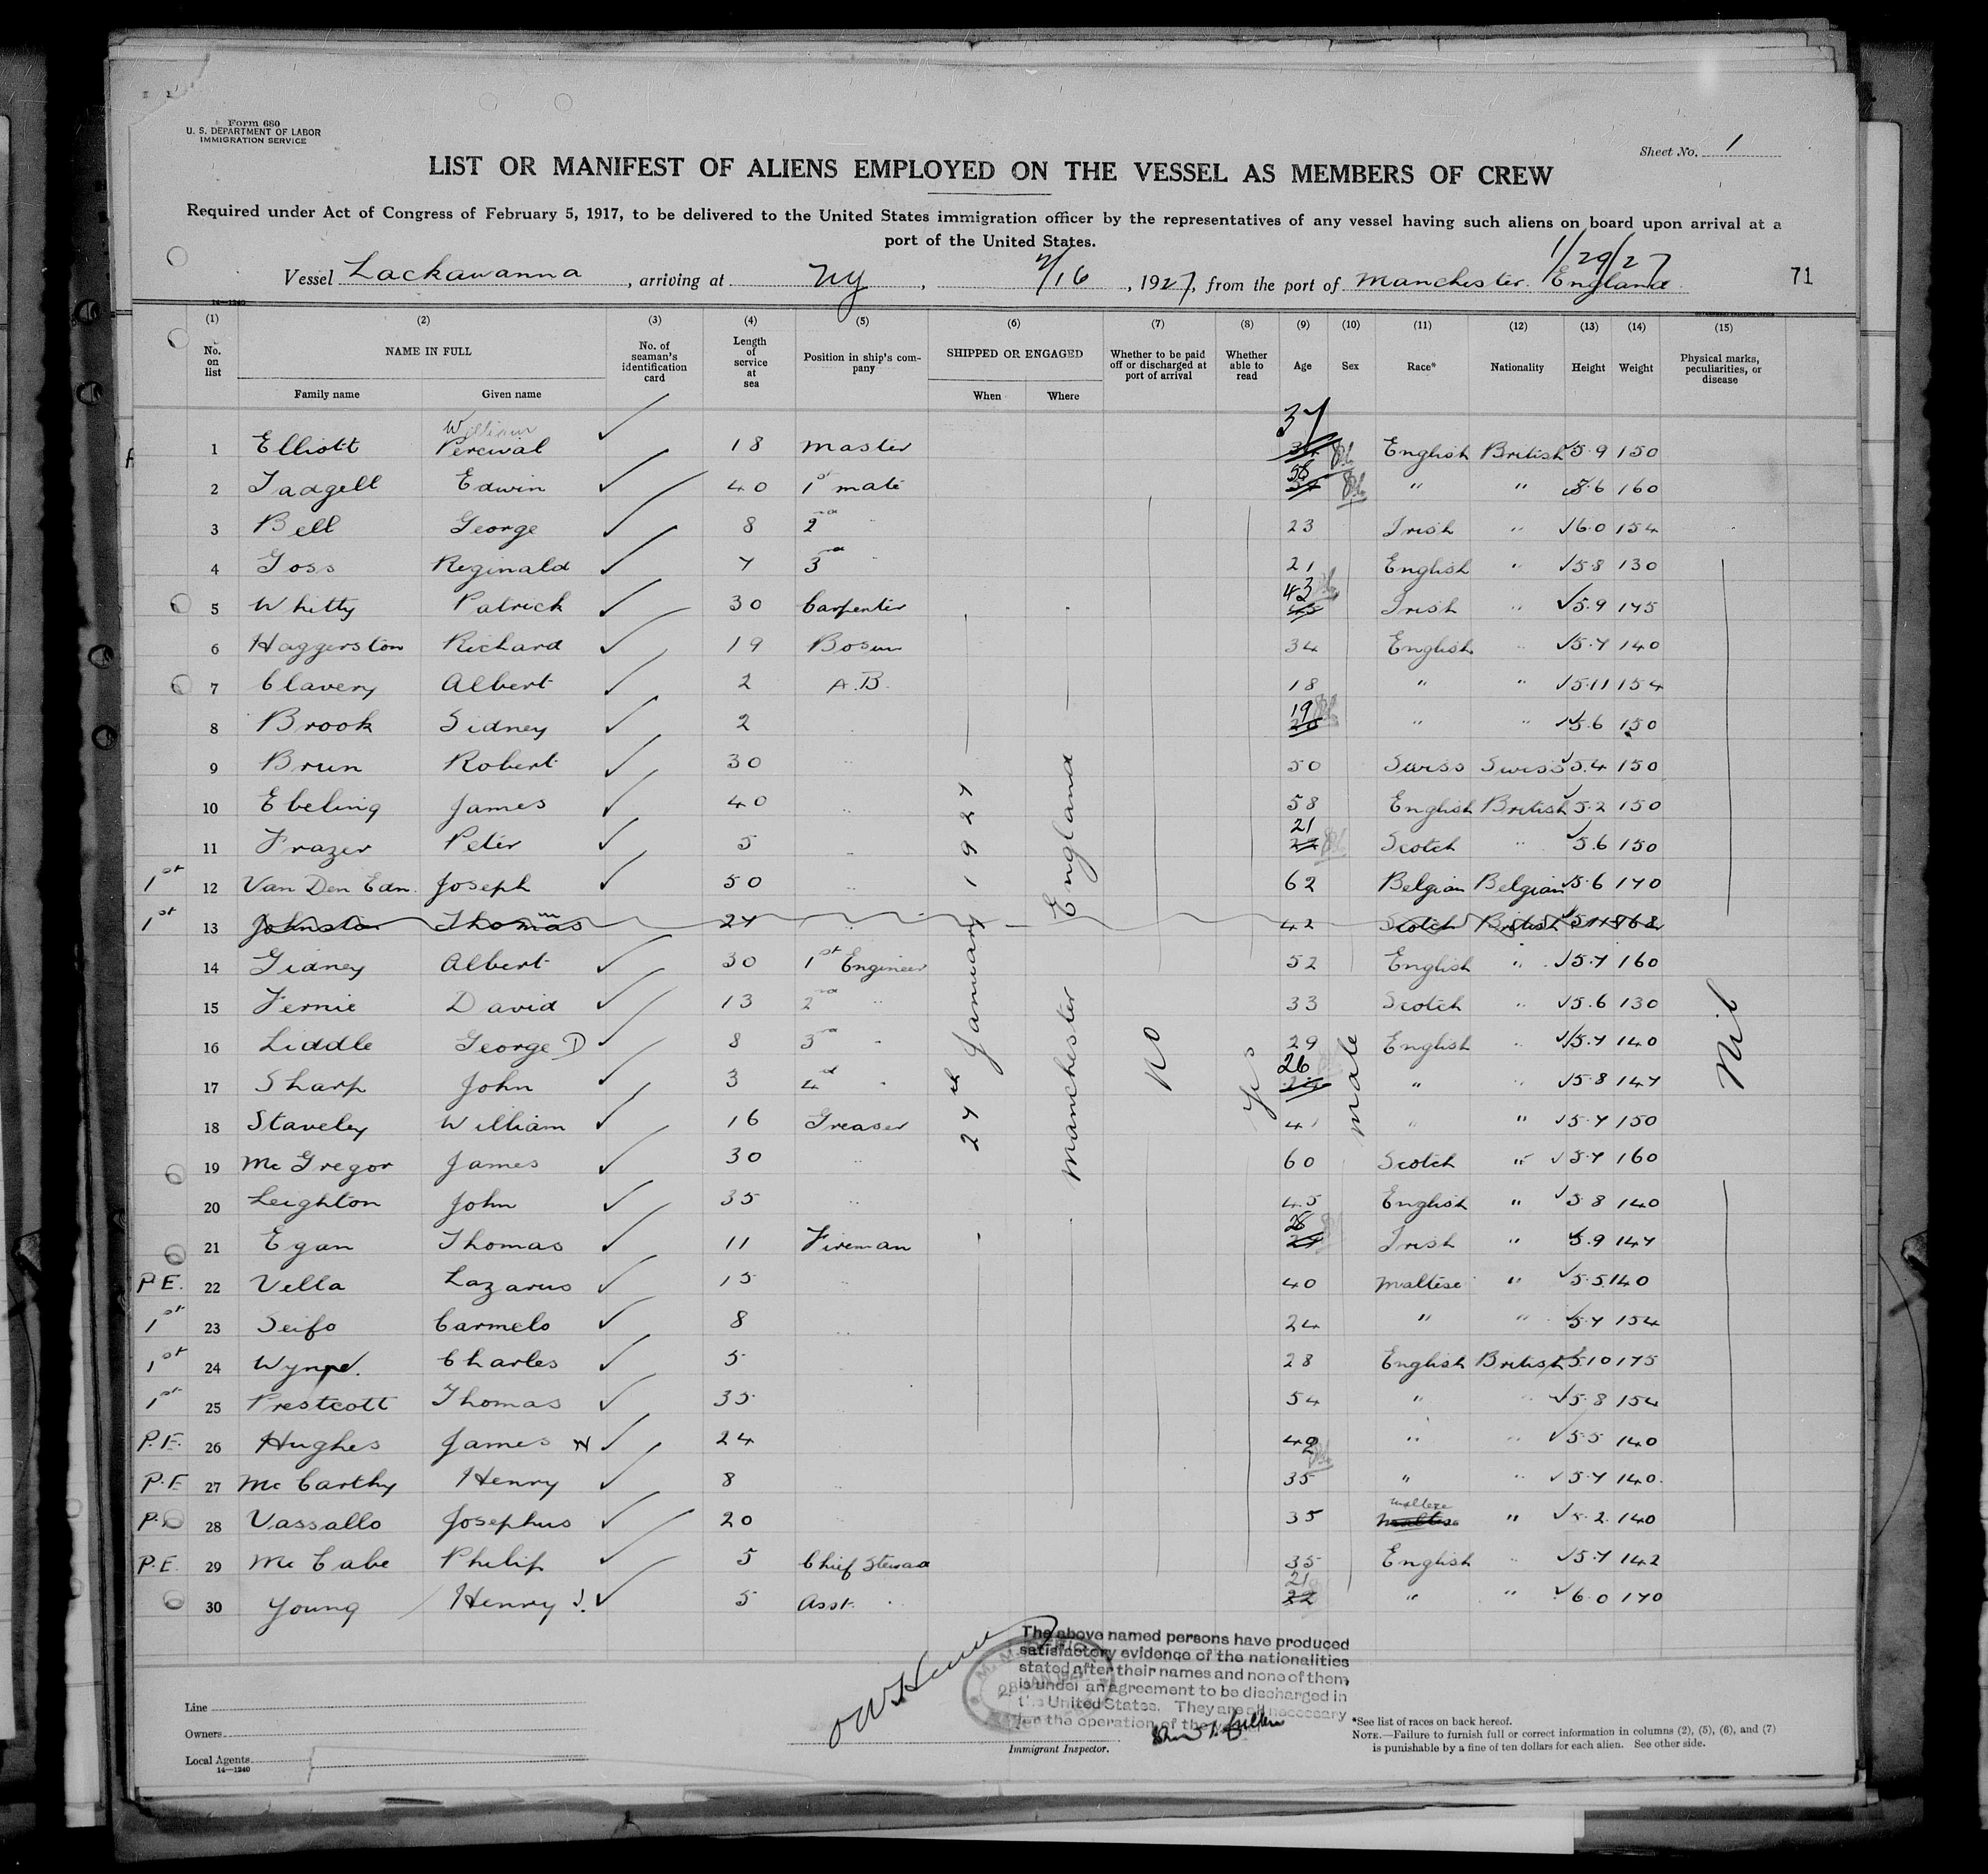 Form 680
U. S. DEPARTMENT OF LABOR
IMMIGRATION SERVICE
Sheet No. 1
LIST OR MANIFEST OF ALIENS EMPLOYED ON THE VESSEL AS MEMBERS OF CREW
Required under Act of Congress of February 5, 1917, to be delivered to the United States immigration officer by the representatives of any vessel having such aliens on board upon arrival at a
port of the United States.
1/29/27
Vessel Lackawanna, arriving at NY, 2/16, 1927, from the port of Manchester. England 71
14—1240
(1) (2) (3) (4) (5) (6) (7) (8) (9) (10) (11) (12) (13) (14) (15)
No. on list NAME IN FULL Family name Given name No. of seaman's identification card Length of service at sea Position in ship's company SHIPPED OR ENGAGED When Where Whether to be paid off or discharged at port of arrival Whether able to read Age Sex Race* Nationality Height Weight Physical marks, peculiarities, or disease
William 37
1 Elliott Percival 18 Master English British 5.9 150
2 Tadgell Edwin 40 1st mate " " 5.6 160
3 Bell George 8 2nd " 23 Irish " 6.0 154
4 Goss Reginald 7 3rd " 21 English " 5.8 130
5 Whitty Patrick 30 Carpenter 43 Irish " 5.9 175
6 Haggerston Richard 19 Bosun 34 English " 5.7 140
7 Clavery Albert 2 A.B. 18 " " 5.11 154
8 Brook Sidney 2 19 " " 5.6 150
9 Brun Robert 30 50 Swiss Swiss 5.4 150
10 Ebeling James 40 58 English British 5.2 150
11 Frazer Peter 5 21 Scotch " 5.6 150
1st 12 Van Den Edn. Joseph 50 62 Belgian Belgian 5.6 170
1st 13 Johnston Thomas 27 42 Scotch British
14 Gidney Albert 30 1st Engineer 52 English " 5.7 160
15 Fernie David 13 2nd " 33 Scotch " 5.6 130
16 Liddle George D 8 3rd " 29 English " 5.7 140
17 Sharp John 3 4th " 26 " " 5.8 147
18 Staveley William 16 Greaser 41 " " 5.7 150
19 McGregor James 30 " 60 Scotch " 5.7 160
20 Leighton John 35 " 45 English " 5.8 140
21 Egan Thomas 11 Fireman Irish " 5.9 147
P.E. 22 Vella Lazarus 15 " 40 Maltese " 5.5 140
1st 23 Seifo Carmelo 8 " 24 " " 5.7 154
1st 24 Wynne. Charles 5 28 English British 5.10 175
1st 25 Prestcott Thomas 35 54 " " 5.8 154
P.E. 26 Hughes James 24 " " 5.5 140
P.E 27 McCarthy Henry 8 35 " " 5.7 140
28 Vassallo Josephus 20 35 Maltese " 5.2 140
P.E. 29 McCabe Philip 5 Chief Steward 35 English " 5.7 142
30 Young Henry J. 5 Asst. " 21 " " 6.0 170
27th January 1927
Manchester England
No
Yes
Male
Nil
The above named persons have produced
satisfactory evidence of the nationalities
stated after their names and none of them
is under an agreement to be discharged in
the United States. They are all necessary
for the operation of the
Line
Owners
Local Agents
14—1240
Immigrant Inspector.
*See list of races on back hereof.
NOTE.—Failure to furnish full or correct information in columns (2), (5), (6), and (7)
is punishable by a fine of ten dollars for each alien. See other side.